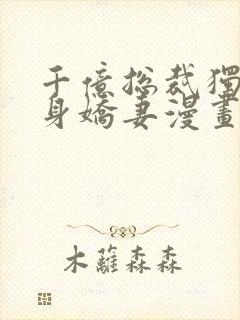 千億總裁獨
身嬌妻漫畫
木蘿森森